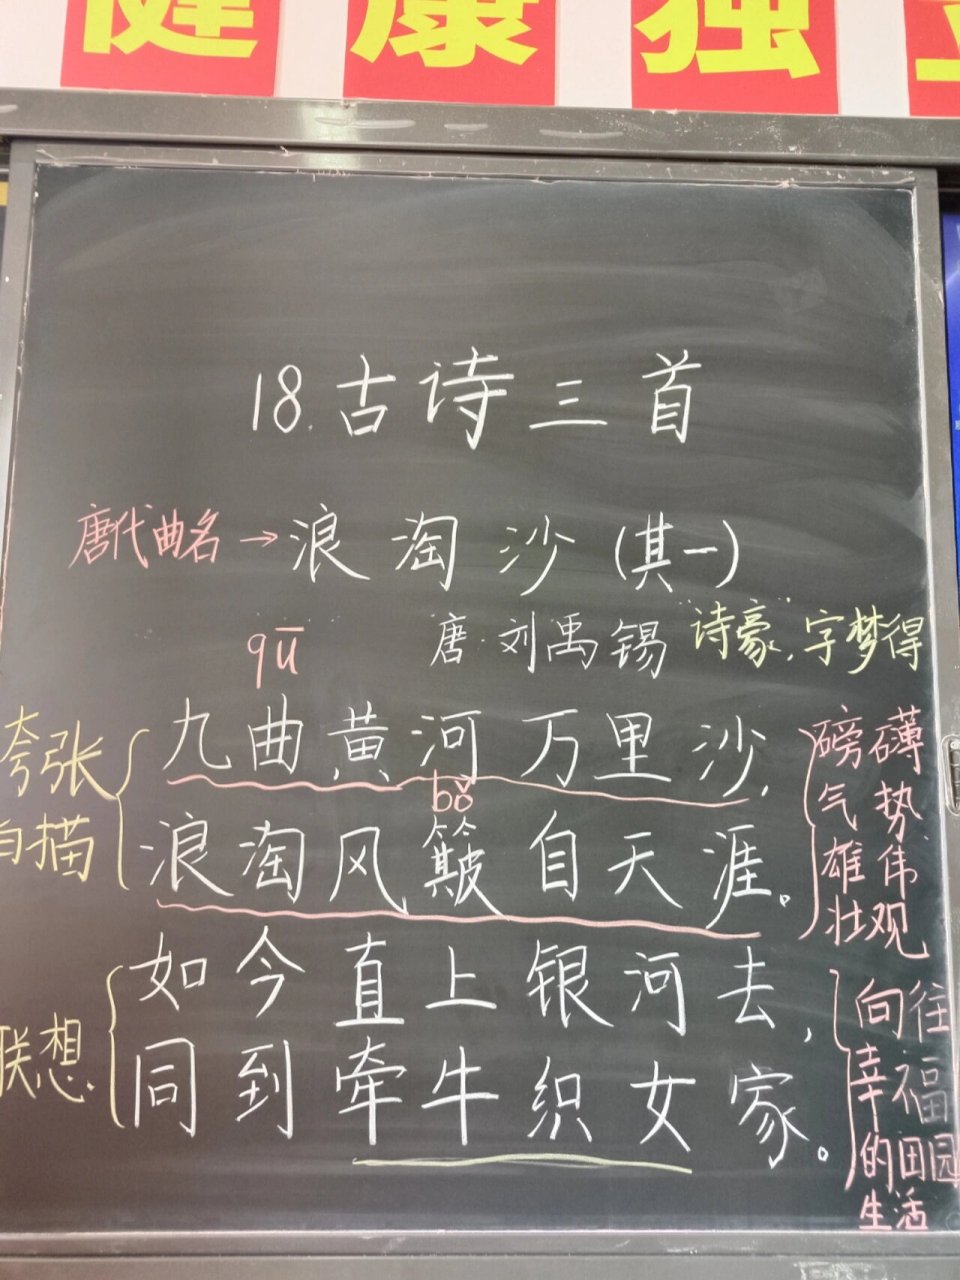 健康独立
18.古诗三首
唐代曲名→浪淘沙(其一)
qū
唐·刘禹锡 "诗豪",字梦得
夸张
白描
九曲黄河万里沙,
bǒ
浪淘风簸自天涯。
磅礴
气势
雄伟
壮观
联想
如今直上银河去,
同到牵牛织女家。
向往
幸福
的田园
生活